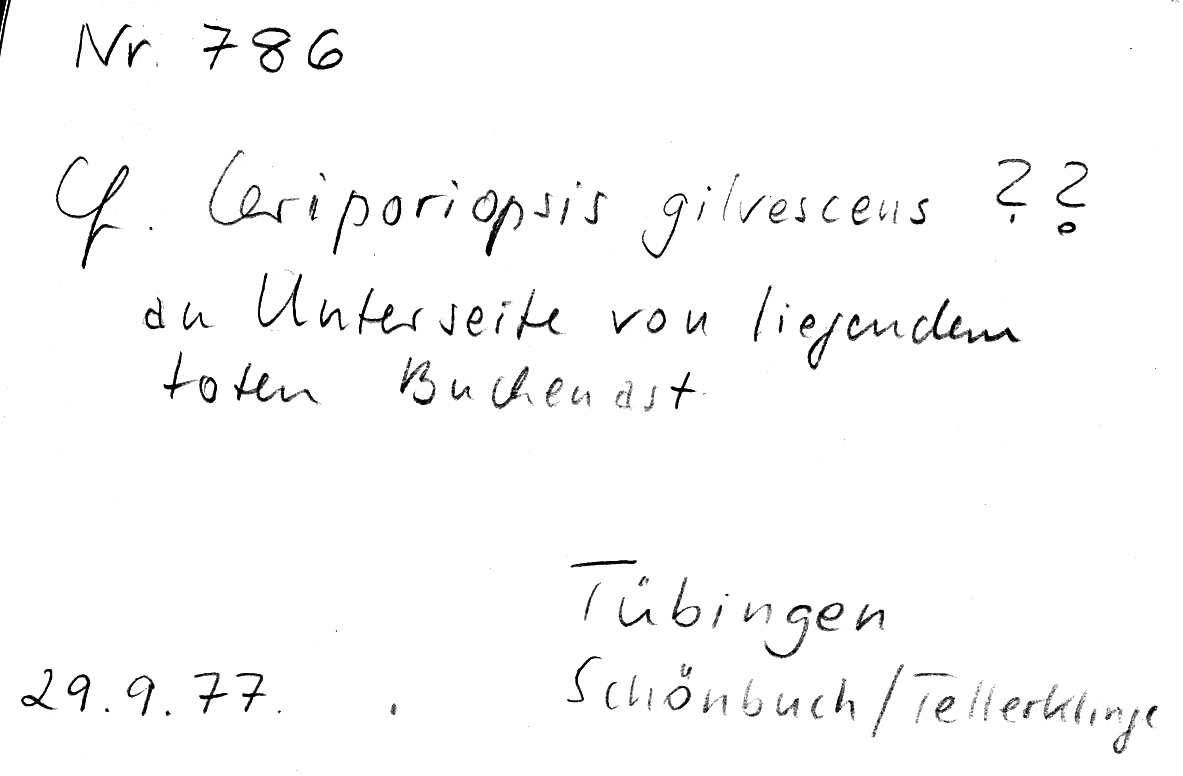 Nr. 786
Cf. Ceriporiopsis gilvescens ??
an Unterseite von liegendem
toten Buchenast
Tübingen
29.9.77. Schönbuch/Tellerklinge